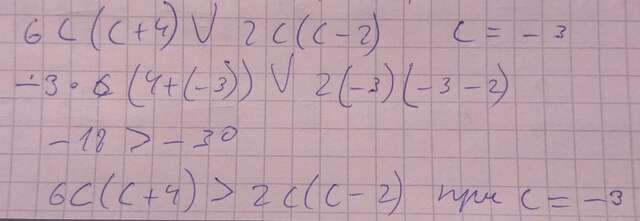 6c(c+4) V 2c(c-2) c = -3
-3·6(4+(-3)) V 2(-3)(-3-2)
-18 > -30
6c(c+4) > 2c(c-2) при c = -3